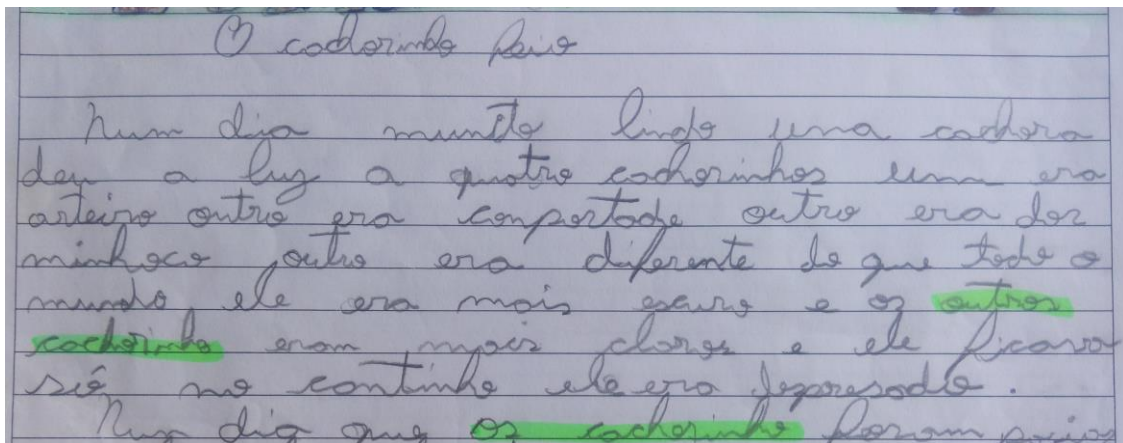 O cachorinho feio
Num dia muinto lindo uma cachora
deu a luz a quatro cachorinhos um era
arteiro outro era conportado outro era dor
minhoco outro era diferente do que todo o
mundo ele era mais escuro e os outros
cachorinho eram mais claros e ele ficava
só no cantinho ele era depresado.
Num dia que os cachorinho foram